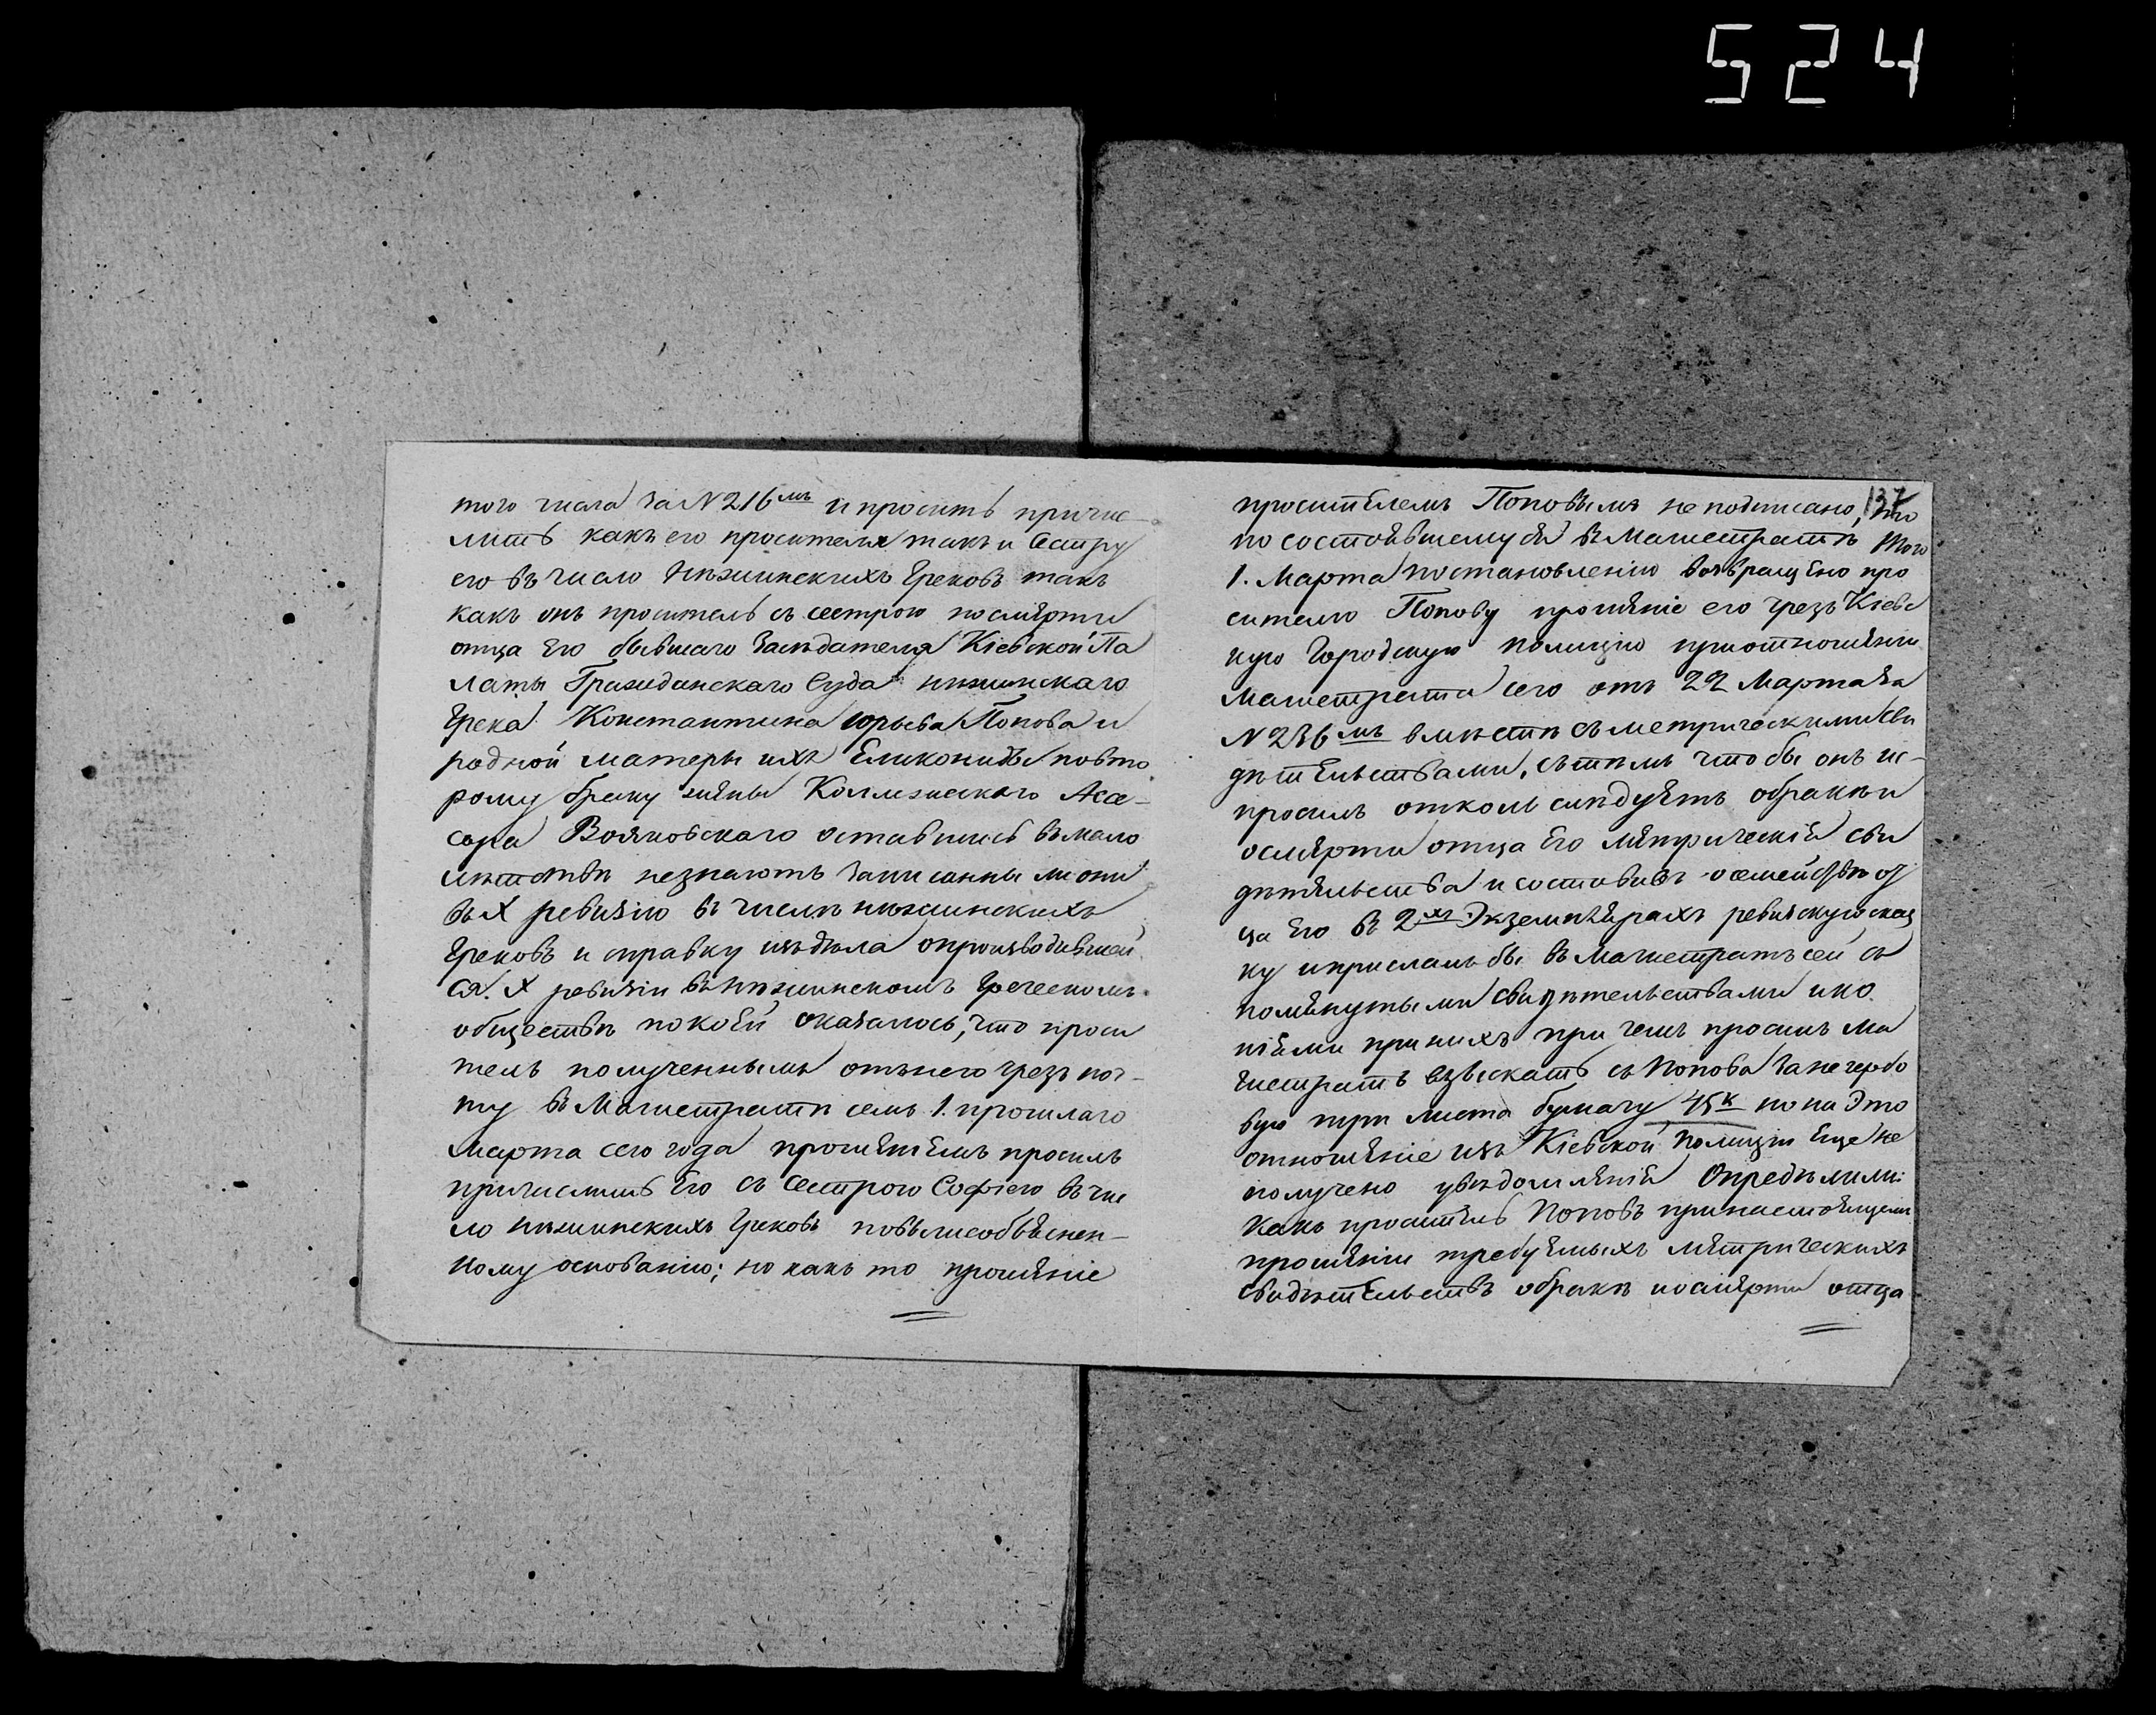 524
того числа за N 216мъ и проситъ причис-
лить какъ его просителя такъ и Сестру
его въ число Нѣжинскихъ Грековъ такъ
какъ онъ проситель съ сестрою посмерти
отца Его бывшаго Засѣдателя Кіевской Па
латы Гражданскаго Суда нѣжинскаго
Грека Константина Юрьева Попова и
родной матери ихъ Еликониды повто
рому браку жены Коллежскаго Асе-
сора Вояковскаго оставшись вмало
лѣтствѣ незнаютъ записанны ли они
въ X ревизію въ числѣ нѣжинскихъ
Грековъ и справку изъ дѣла опроизводившей
ся X ревизіи въ нѣжинскомъ Греческомъ
обществѣ покоей оказалось, что проси
тель полученнымъ отънего чрезъ поч-
ту въ Магистратѣ семъ 1. прошлаго
Марта сего года прошеніемъ просилъ
причислить Его съ Сестрою Софіею въ чис
ло нѣжинскихъ Грековъ повышеобъяснен-
ному основанію; но какъ то прошеніе
137
просителемъ Поповымъ не подписано, то
по состоявшемуся въ Магистратѣ того
1. Марта постановленію возвращено про
сителю Попову прошеніе его чрезъ Кіевс
кую Городскую полицію приотношеніи
Магистрата сего отъ 22 Марта за
N 236мъ вмѣстѣ съ метрическими сви
дѣтельствами, сътѣмъ чтобы онъ ис-
просилъ отколь слѣдуетъ обракѣ и
осмерти отца Его метрическія сви
дѣтельства и составивъ осемействѣ от
ца Его въ 2хъ Экземплярахъ ревизскую сказ
ку иприслалъ бы въ Магистратъ сей съ
помянутыми свидѣтельствами ико
піями принихъ при чемъ просилъ Ма
гистратъ взыскать съ Попова за негербо
вую три листа бумагу 45к но на Это
отношеніе изъ Кіевской полиціи Еще не
получено увѣдомленія Опредѣлили:
Какъ проситель Поповъ принастоящемъ
прошеніи требуемыхъ метрическихъ
свидѣтельствъ обракѣ иосмерти отца